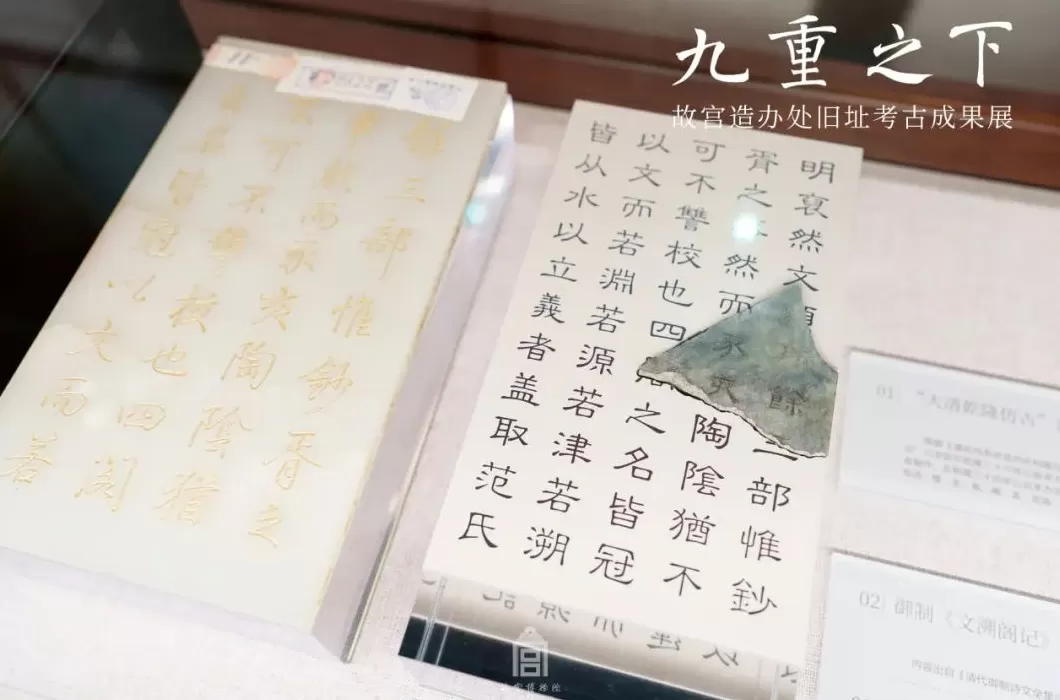 九重之下
故宫造办处旧址考古成果展
餘三部惟鈔胥之
手然而承亥陶陰猶
不可不讐校也四閣
名皆冠以文而若
明裒然文餘三部惟鈔
胥之然而承亥陶陰猶不
可不讐校也四閣之名皆冠
以文而若淵若源若津若溯
皆从水以立義者盖取范氏
01 “大清乾隆仿古”
02 御制《文溯阁记》
内容出自《清代御制诗文全